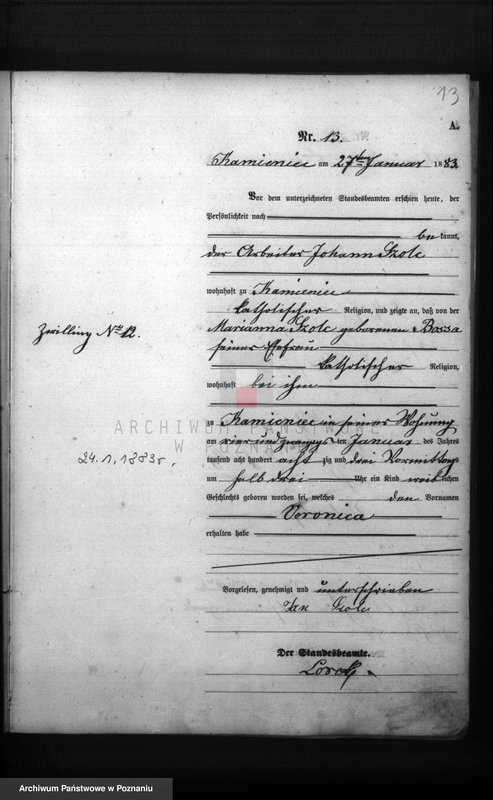 13
A.
Nr. 13.
Kamieniec am 27ten Januar 1883.
Vor dem unterzeichneten Standesbeamten erschien heute, der
Persönlichkeit nach
bekannt,
der Arbeiter Johann Szolc
wohnhaft zu Kamieniec
katholischer Religion, und zeigte an, daß von der
Marianna Szolc geborenen Bossa
seiner Ehefrau
katholischer Religion,
wohnhaft bei ihm
zu Kamieniec in seiner Wohnung
am vier und zwanzigsten Januar des Jahres
tausend acht hundert acht zig und drei Vormittags
um halb drei Uhr ein Kind weiblichen
Geschlechts geboren worden sei, welches den Vornamen
Veronica
erhalten habe
Vorgelesen, genehmigt und unterschrieben
Jan Szolc
Der Standesbeamte.
Zwilling No 12.
24.1.1883r.
ARCHIWUM PAŃSTWOWE
W POZNANIU
Archiwum Państwowe w Poznaniu